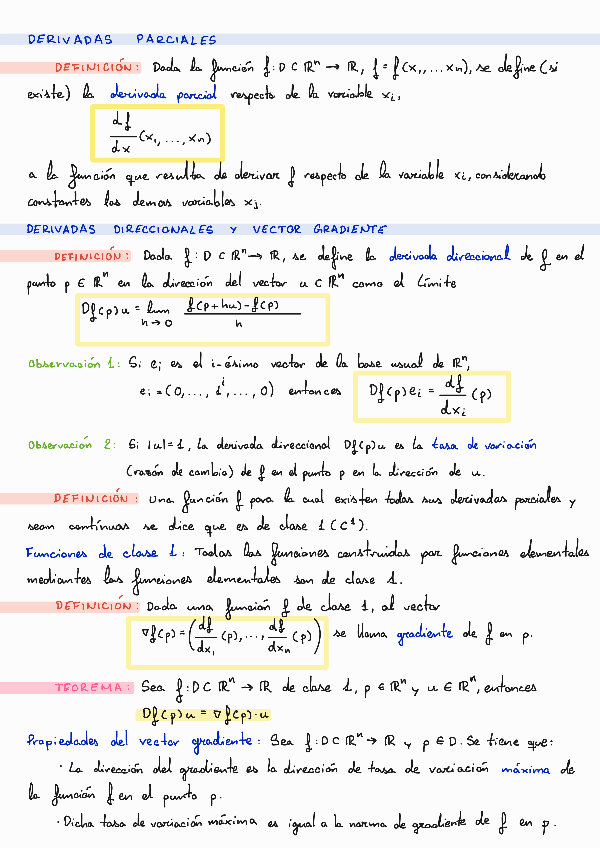 DERIVADAS PARCIALES
DEFINICIÓN: Dada la función f: D ⊂ ℝⁿ → ℝ, f = f(x₁,...xₙ), se define (si
existe) la derivada parcial respecto de la variable xᵢ,
df/dx (x₁,...,xₙ)
a la función que resulta de derivar f respecto de la variable xᵢ, considerando
constantes las demas variables xⱼ.
DERIVADAS DIRECCIONALES Y VECTOR GRADIENTE
DEFINICIÓN: Dada f: D ⊂ ℝⁿ → ℝ, se define la derivada direccional de f en el
punto p ∈ ℝⁿ en la dirección del vector u ⊂ ℝⁿ como el límite
Df(p)u = lim h→0 f(p+hu)-f(p) / h
Observación 1: Si eᵢ es el i-ésimo vector de la base usual de ℝⁿ,
eᵢ = (0,..., 1ⁱ,..., 0) entonces Df(p)eᵢ = df/dxᵢ (p)
Observación 2: Si |u|=1, la derivada direccional Df(p)u es la tasa de variación
(razón de cambio) de f en el punto p en la dirección de u.
DEFINICIÓN: Una función f para la cual existen todas sus derivadas parciales y
sean contínuas se dice que es de clase 1 (C¹).
Funciones de clase 1: Todas las funciones construidas por funciones elementales
mediantes las funciones elementales son de clase 1.
DEFINICIÓN: Dada una función f de clase 1, al vector
∇f(p) = (df/dx₁ (p),..., df/dxₙ (p)) se llama gradiente de f en p.
TEOREMA: Sea f: D ⊂ ℝⁿ → ℝ de clase 1, p ∈ ℝⁿ y u ∈ ℝⁿ, entonces
Df(p)u = ∇f(p)·u
Propiedades del vector gradiente: Sea f: D ⊂ ℝⁿ → ℝ y p ∈ D. Se tiene que:
· La dirección del gradiente es la dirección de tasa de variación máxima de
la función f en el punto p.
· Dicha tasa de variación máxima es igual a la norma de gradiente de f en p.